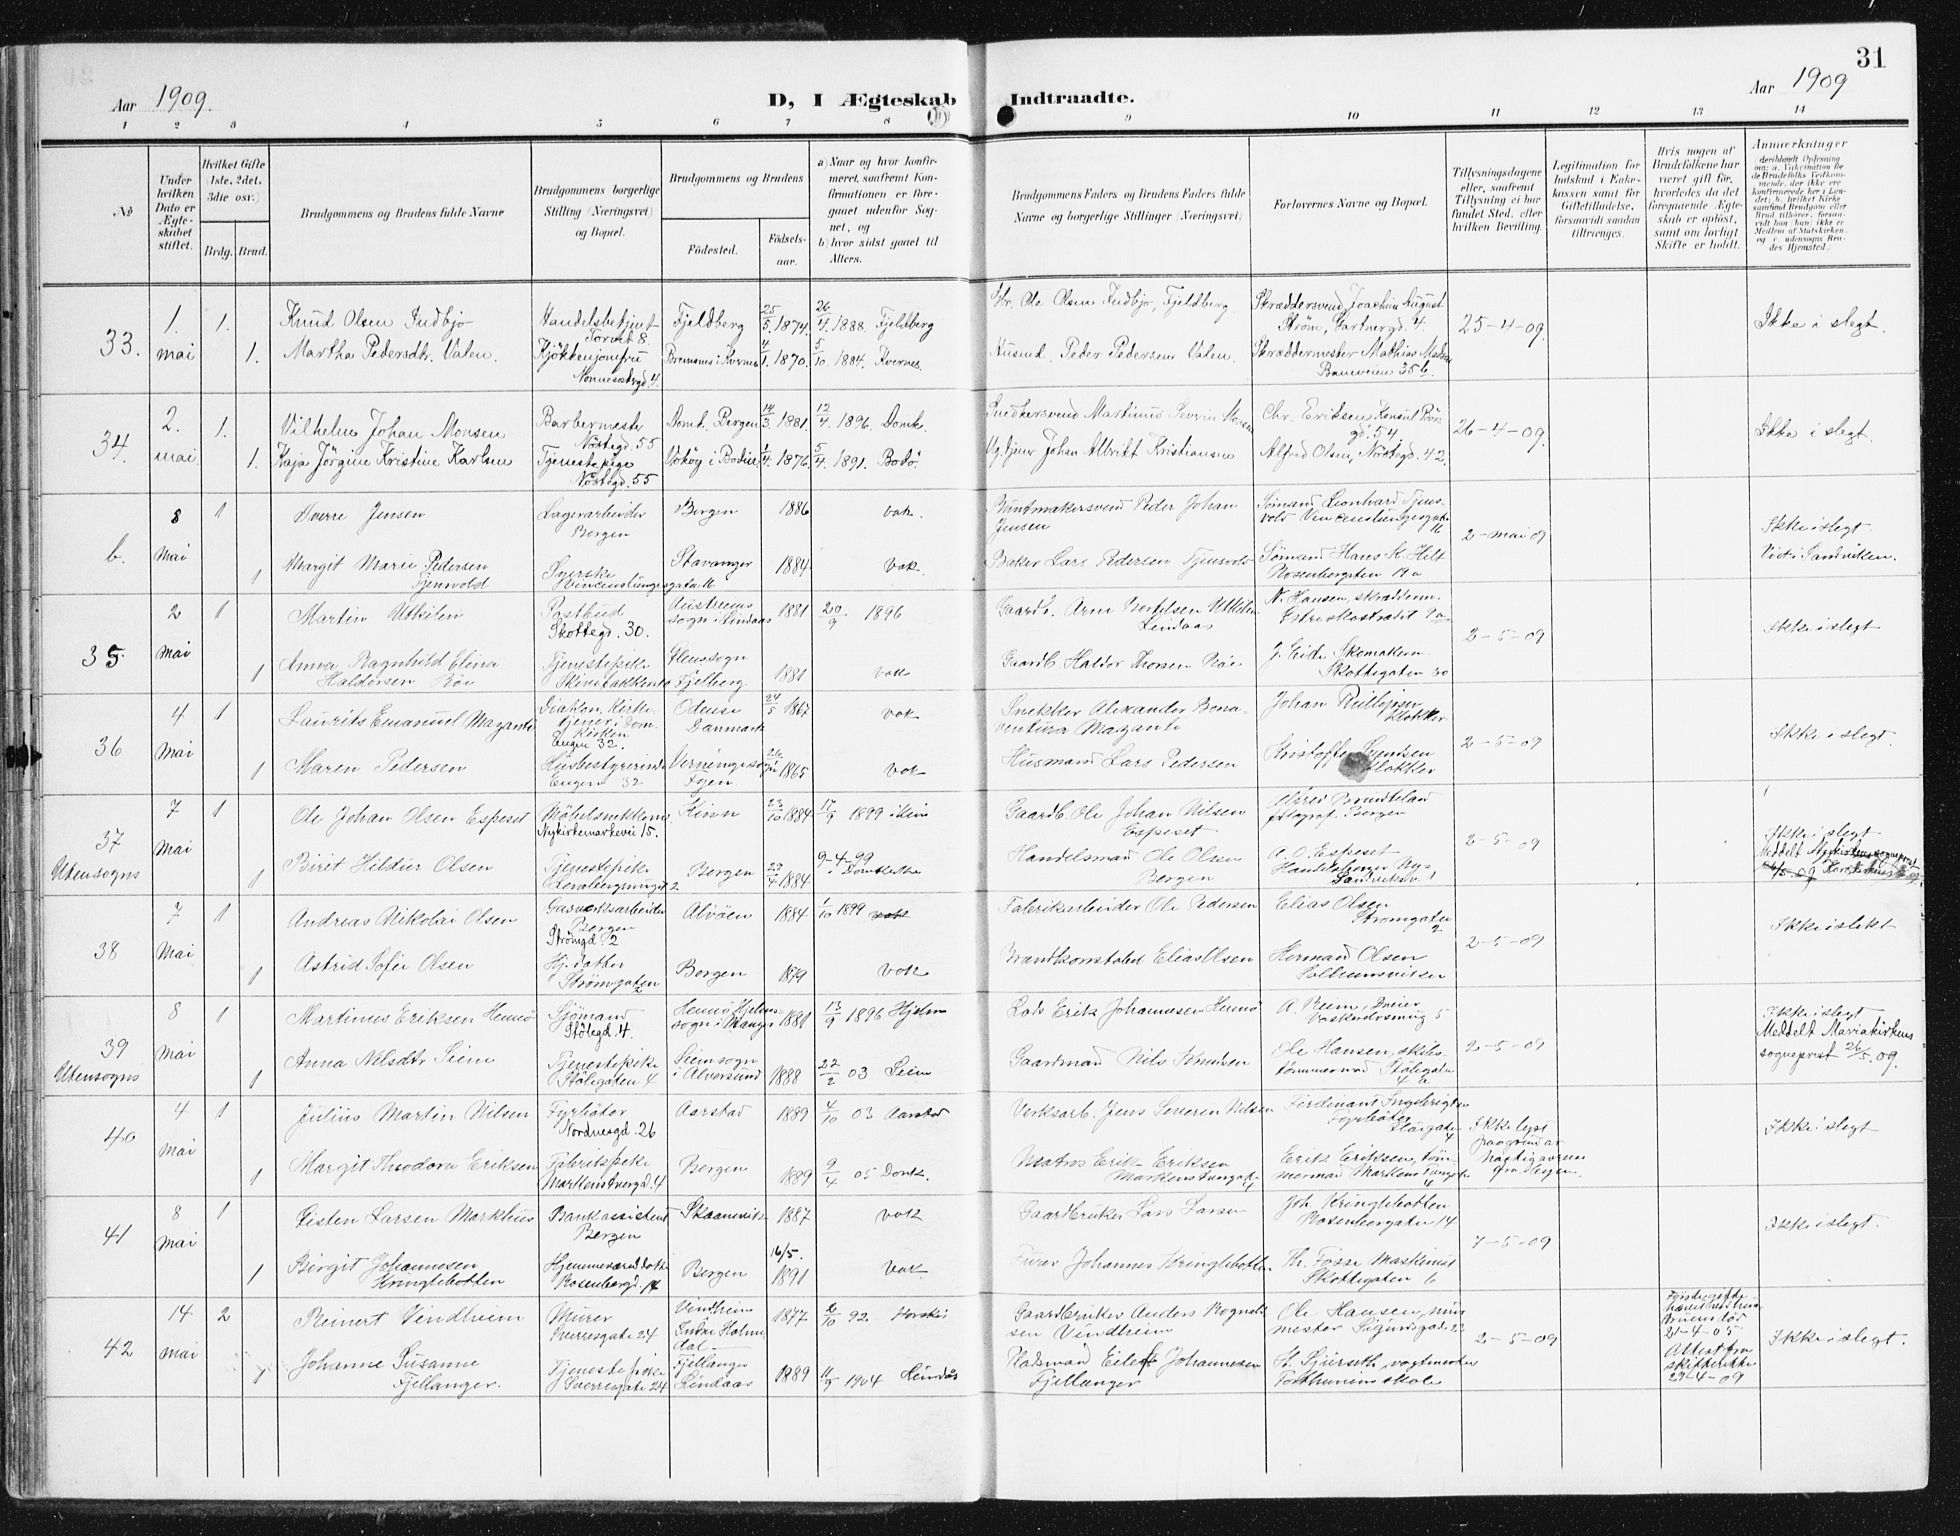 31
Aar 1909.
D, I Ægteskab
Indtraadte.
Aar 1909
1 2 3 4 5 6 7 8 9 10 11 12 13 14
No
Under hvilken Dato er Ægteskabet stiftet.
Hvilket Gifte (1ste, 2det, 3die osv.)
Brdg. Brud.
Brudgommens og Brudens fulde Navne
Brudgommens borgerlige Stilling (Næringsvei) og Bopæl.
Brudgommens og Brudens
Fødested.
Fødselsaar.
a) Naar og hvor konfirmeret, saafremt Konfirmationen er foregaaet udenfor Sognet, og
b) hvor sidst gaaet til Alters.
Brudgommens Faders og Brudens Faders fulde Navne og borgerlige Stillinger (Næringsvei)
Forlovernes Navne og Bopæl.
Tillysningsdagene eller, saafremt Tillysning ei har fundet Sted, efter hvilken Bevilling.
Legitimation for Indskud i Enkekassen samt for Giftetilladelse, forsaavidt saadan tiltrænges.
Hvis nogen af Brudefolkene har været gift før, hvorledes da det foregaaende Ægteskab er opløst, samt om lovligt Skifte er holdt.
Anmerkninger
33.
1. mai 1.
Knud Olsen Indbjo
Handelsbetjent Torvet 8.
Fjeldberg
25/5 1874.
26/4 1888. Fjeldberg
Ole Olsen Indbjo, Fjeldberg
Skræddersvend Joachim August Strøm, Gartnergd. 4.
25-4-09.
Ikke i slegt.
1.
Martha Pedersdtr. Valen.
Kjøkkenjomfru Nonnesætergd 4.
Bremsnes i Kvernes
4/1. 1870.
5/10 1884. Kvernes.
Husmd. Peder Pedersen Valen.
Skræddermester Mathias Madsen 35 b.
34.
2. mai 1.
Vilhelm Johan Monsen
Barbermester Nøstegd. 55
Domk. Bergen
14/3. 1881
12/4 1896. Domk.
Snedkersvend Martinus Severin Monsen
Chr. Eriksen, Konsul Børs gd. 54.
26-4-09.
Ikke i slegt.
1.
Kaja Jørgine Kristine Karlsen
Tjenestepige Nøstegd. 55
1/4. 1876.
5/4 1891. Bodø.
Johan Albrikt Kristiansen
Alfred Olsen, Nøstegd. 42.
b.
8 Mai 1
Sverre Jensen
Lagerarbeider Bergen
Bergen
1886
vak.
Buntmakersvend Peder Johan Jensen
Sømand Leonhard Tjensvold Vincenslungesgate 16
2-mai 09
Ikke i slegt
Viet i Sandviken.
1
Margit Marie Pedersen Tjensvold
Syerske Vincenslungesgata 16
Stavanger
1884
vak.
Baker Lars Pedersen Tjensvold
Sømand Hans K. Hilt Rosenbergaten 19a
35
2 Mai 1
Martin Utkilen
Postbud Skottegd. 30.
Austreims sogn i Lindaas
1881
20/9 1896
Gaardb. Arne Bertelsen Utkilen Lindaas
N. Hansen, skrædderm. Østre
2-5-09
Ikke i slegt
1
Anna Ragnhild Elina Haldorsen Røe
Tjenestepike Skivebakken
Ølensogn Fjelberg
1881
vak
Gaardb. Haldor Thorsen Røe
J. Eide Skomakerm. Skottegaten 30
36
4 Mai 1
Laurits Emanuel Mazanti
Diakon, Kirketjener i Domkirken Engen 32.
Odense Danmark
24/5 1867
vak
Snekker Alexander Bonaventura Mazanti
Johan Klokker
2-5-09
Ikke i slegt.
1
Maren Pedersen
Husbestyrerinde Engen 32
Fyen
26/ 1865
vak
Husmand Lars Pedersen
Kristoffer Svendsen Klokker
37
Utensogns
7 Mai 1
Ole Johan Olsen Espeset
Møbelsnekker Nykirkemarksvei 15.
Kinn
23/10 1884
17/9 1899 i Kin
Gaardb. Ole Johan Nilsen Espeset
Alfred Brundtland fotograf. Bergen
2-5-09
Ikke i slegt
Meddelt
1
Birit Hildur Olsen
Tjenestepike
Bergen
27/4 1884
9-4-99 i Domkirken
Handelsmand Ole Olsen Bergen
A. O. Espeset Handelsborger Ny-Sandviksv. 1
38
7 Mai 1
Andreas Nikolai Olsen
Gasverksarbeider Bergen Strømgd 2
Alvøen
1884
1/10 1899
Fabrikarbeider Ole Pedersen
Elias Olsen Strømgaten 2
2-5-09
Ikke i slekt
1
Astrid Sofie Olsen
Hj. datter Strømgaten 2
Bergen
1879
vak
Brandkonstabel Elias Olsen
Herman Olsen Solheimsviken
39
Utensogns
8 Mai 1
Martinus Eriksen Hennø
Sjømand Stølegd. 4.
Hennø Hjelmsogn i Manger
1881
13/9 1896 Hjelm
Lods Erik Johannesen Hennø
A. Reim, Dreier 5
2-5-09
Ikke i slegt
Meddelt Mariakirkens sogneprest 26/5.09.
1
Anna Nilsdtr Seim
Tjenestepike Stølegaten 4
Seimsogn i Alversund
1888
22/2 03 Seim
Gaardmand Nils Knudsen
Ole Hansen, skibstømmermand Stølegaten 4a
40
4 Mai 1
Julius Martin Nilsen
Fyrbøter Nordnesgd. 26
Aarstad
1889
4/10 03 Aarstad
Verksarb. Jens Severin Nilsen
Ferdinant Ingebrigtsen Fyrbøter 4
Ikke lyst paagrund av
Ikke i slegt
1
Margit Theodora Eriksen
Fabrikpike Markenstvergd. 4
Bergen
1889
9/4 05 Domk.
Matros Erik Eriksen Markenstvergate 4
Erik Eriksen, tømmermand Markens Tvergate 4
41
8 Mai 1
Gisten Larsen Markhus
Bankassistent Bergen
Skaanevik
1887
vak
Gaardbruker Lars Larsen
Joh. Kringlebotten Rosenbergaten 14
7-5-09
Ikke i slegt.
1
Bergit Johannesen Kringlebotten
Hjemmeværende dat. Rosenbergd. 14
Bergen
16/5. 1891
vak
Furer Johannes Kringlebotten
Th. Fosse Maskinist Skottegaten 6
42
14 mai 2
Reinert Vindheim
Murer Sverresgate 24
Vindheim Indre Holm
1877
2/10 92 Horskei
Gaardbruker Anders Rognaldsen Vindheim
Ole Hansen, murmester Sigurdsgade 23
2-5-09
21-4-05 Attest fra skifteretten 29-4-09
Ikke i slegt.
1
Johanne Susanne Fjellanger.
Tjenestepike Sverresgate 24
Fjellanger Lindaas
1889
11/9 1904 Lindås
Pladsmand Eilert Johannesen Fjellanger
St. Sjurseth, vagtmester skole